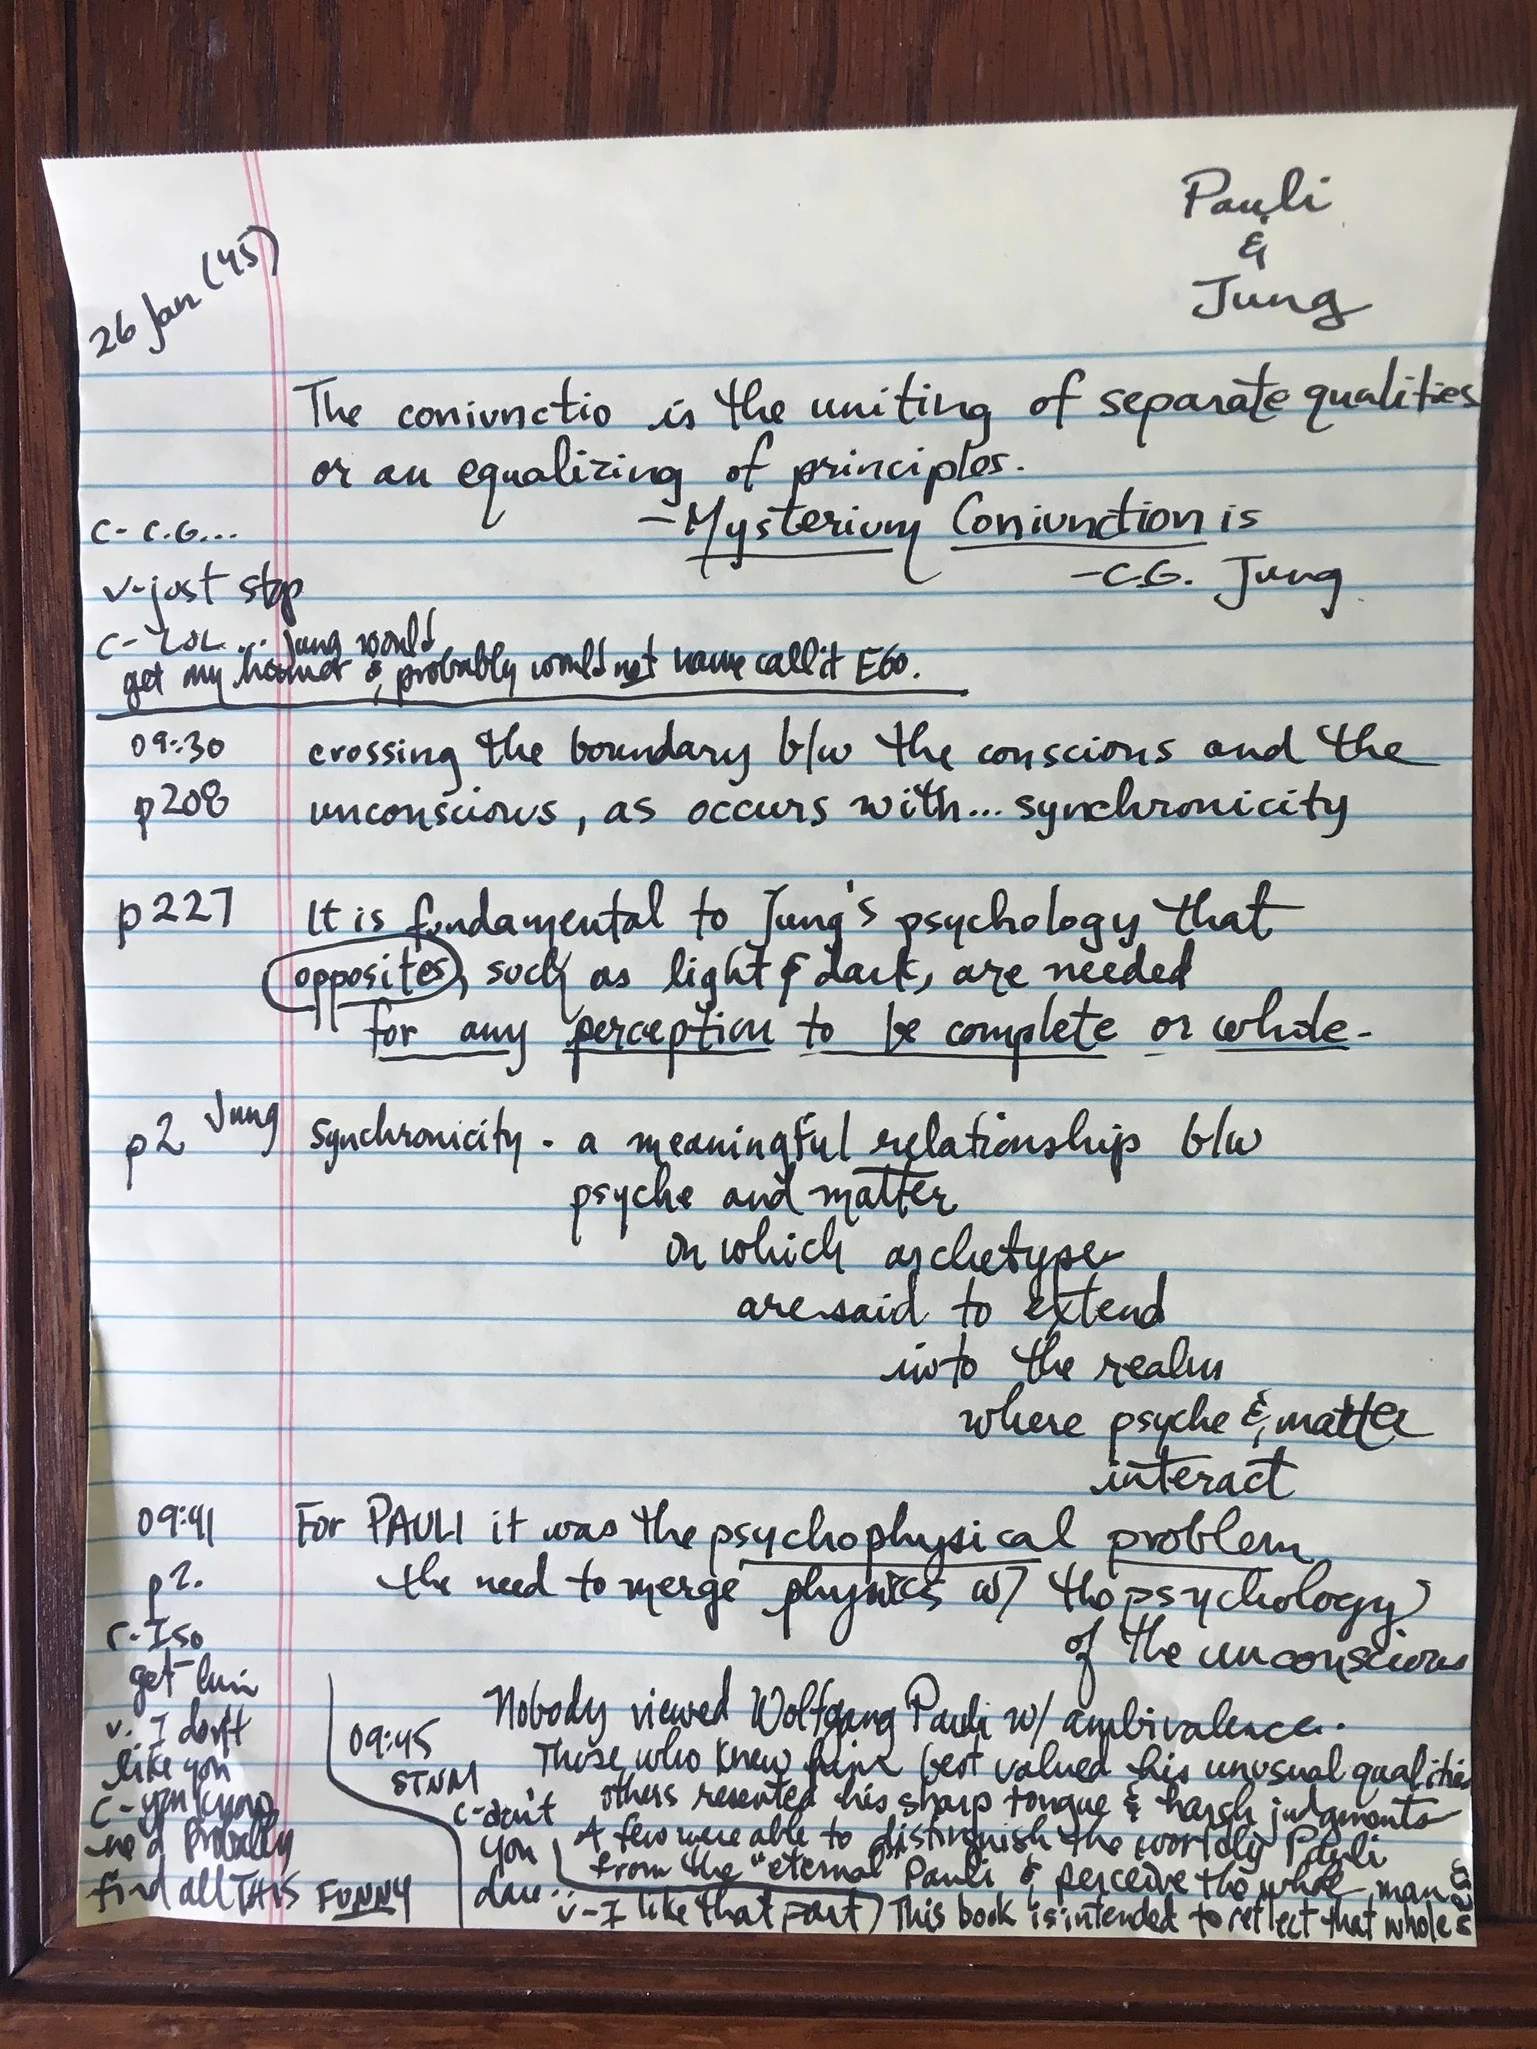 Pauli
&
Jung
26 Jan (45)
The coniunctio is the uniting of separate qualities
or an equalizing of principles.
- Mysterium Coniunction is
- C.G. Jung
C - C.G...
v - just stop
C - LOL... Jung would
get my humor & probably would not name call it EGO.
09:30 crossing the boundary b/w the conscious and the
p208 unconscious, as occurs with... synchronicity
p227 It is fundamental to Jung's psychology that
opposites, such as light & dark, are needed
for any perception to be complete or whole -
p2 Jung Synchronicity - a meaningful relationship b/w
psyche and matter
in which archetype
are said to extend
into the realm
where psyche & matter
interact
09:41 For PAULI it was the psychophysical problem
p2. the need to merge physics w/ the psychology
of the unconscious
C - I so
get him
v - I don't
like you
C - you know
he'd probably
find all THIS FUNNY
09:45 Nobody viewed Wolfgang Pauli w/ ambivalence.
STNM Those who knew him best valued his unusual qualities
others resented his sharp tongue & harsh judgments
A few were able to distinguish the worldly Pauli
from the "eternal" Pauli & perceive the whole man
This book is intended to reflect that whole
C - don't
you
dare...
v - I like that part